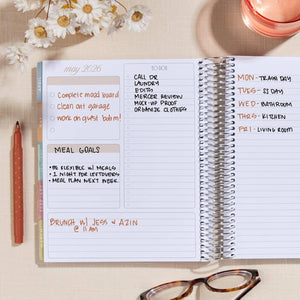 may 2026
Complete mood board
clean out garage
work on quilt bobm!
TO BUY
CALL DR
LAUNDRY
EDITH
MERCER REVIEW
MOCK-UP PROOF
ORGANIZE CLOTHES
MEAL GOALS
• BE FLEXIBLE W/ MEALS
• 1 NIGHT FOR LEFTOVERS
• MEAL PLAN NEXT WEEK
BRUNCH W/ JESS & AZIN
@ 11 AM
MON - TRASH DAY
TUES - SJ DAY
WED - BATHROOM
THRS - KITCHEN
FRI - LIVING ROOM